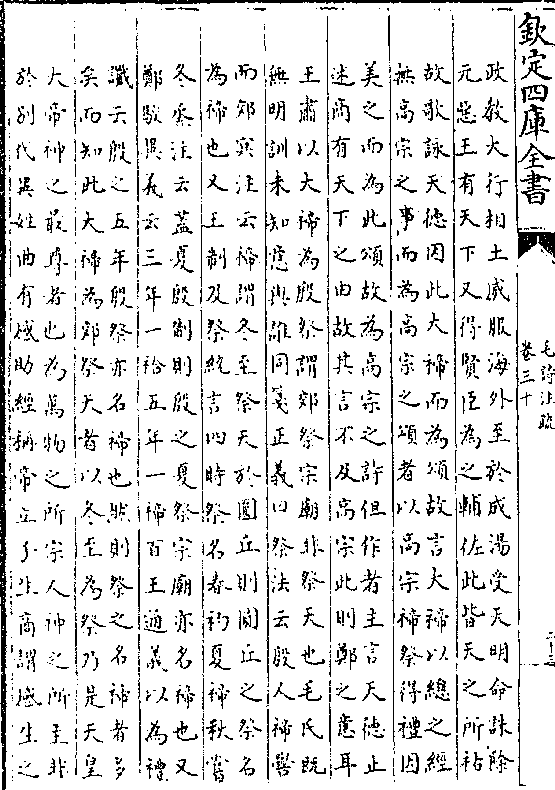 欽定四庫全書
毛詩注疏
卷三十
政教大行相土威服海外至於成湯受天明命誅除
元惡王有天下又得賢臣為之輔佐此皆天之所祐
故歌詠天德因此大禘而為頌故言大禘以總之經
無高宗之事而為高宗之頌者以高宗禘祭得禮因
美之而為此頌故為高宗之詩但作者主言天德止
述商有天下之由故其言不及高宗此則鄭之意耳
王肅以大禘為殷祭謂郊祭宗廟非祭天也毛氏既
無明訓未知意與誰同箋正義曰祭法云殷人禘嚳
而郊冥注云禘謂冬至祭天於圜丘則圜丘之祭名
為禘也又王制及祭統言四時祭名春礿夏禘秋嘗
冬烝注云蓋夏殷制則殷之夏祭宗廟亦名禘也又
鄭駮異義云三年一祫五年一禘百王通義以為禮
讖云殷之五年殷祭亦名禘也然則祭之名禘者多
矣而知此大禘為郊祭天者以冬至為祭乃是天皇
大帝神之最尊者也為萬物之所宗人神之所主非
於別代異姓曲有感助經稱帝立子生商謂感生之